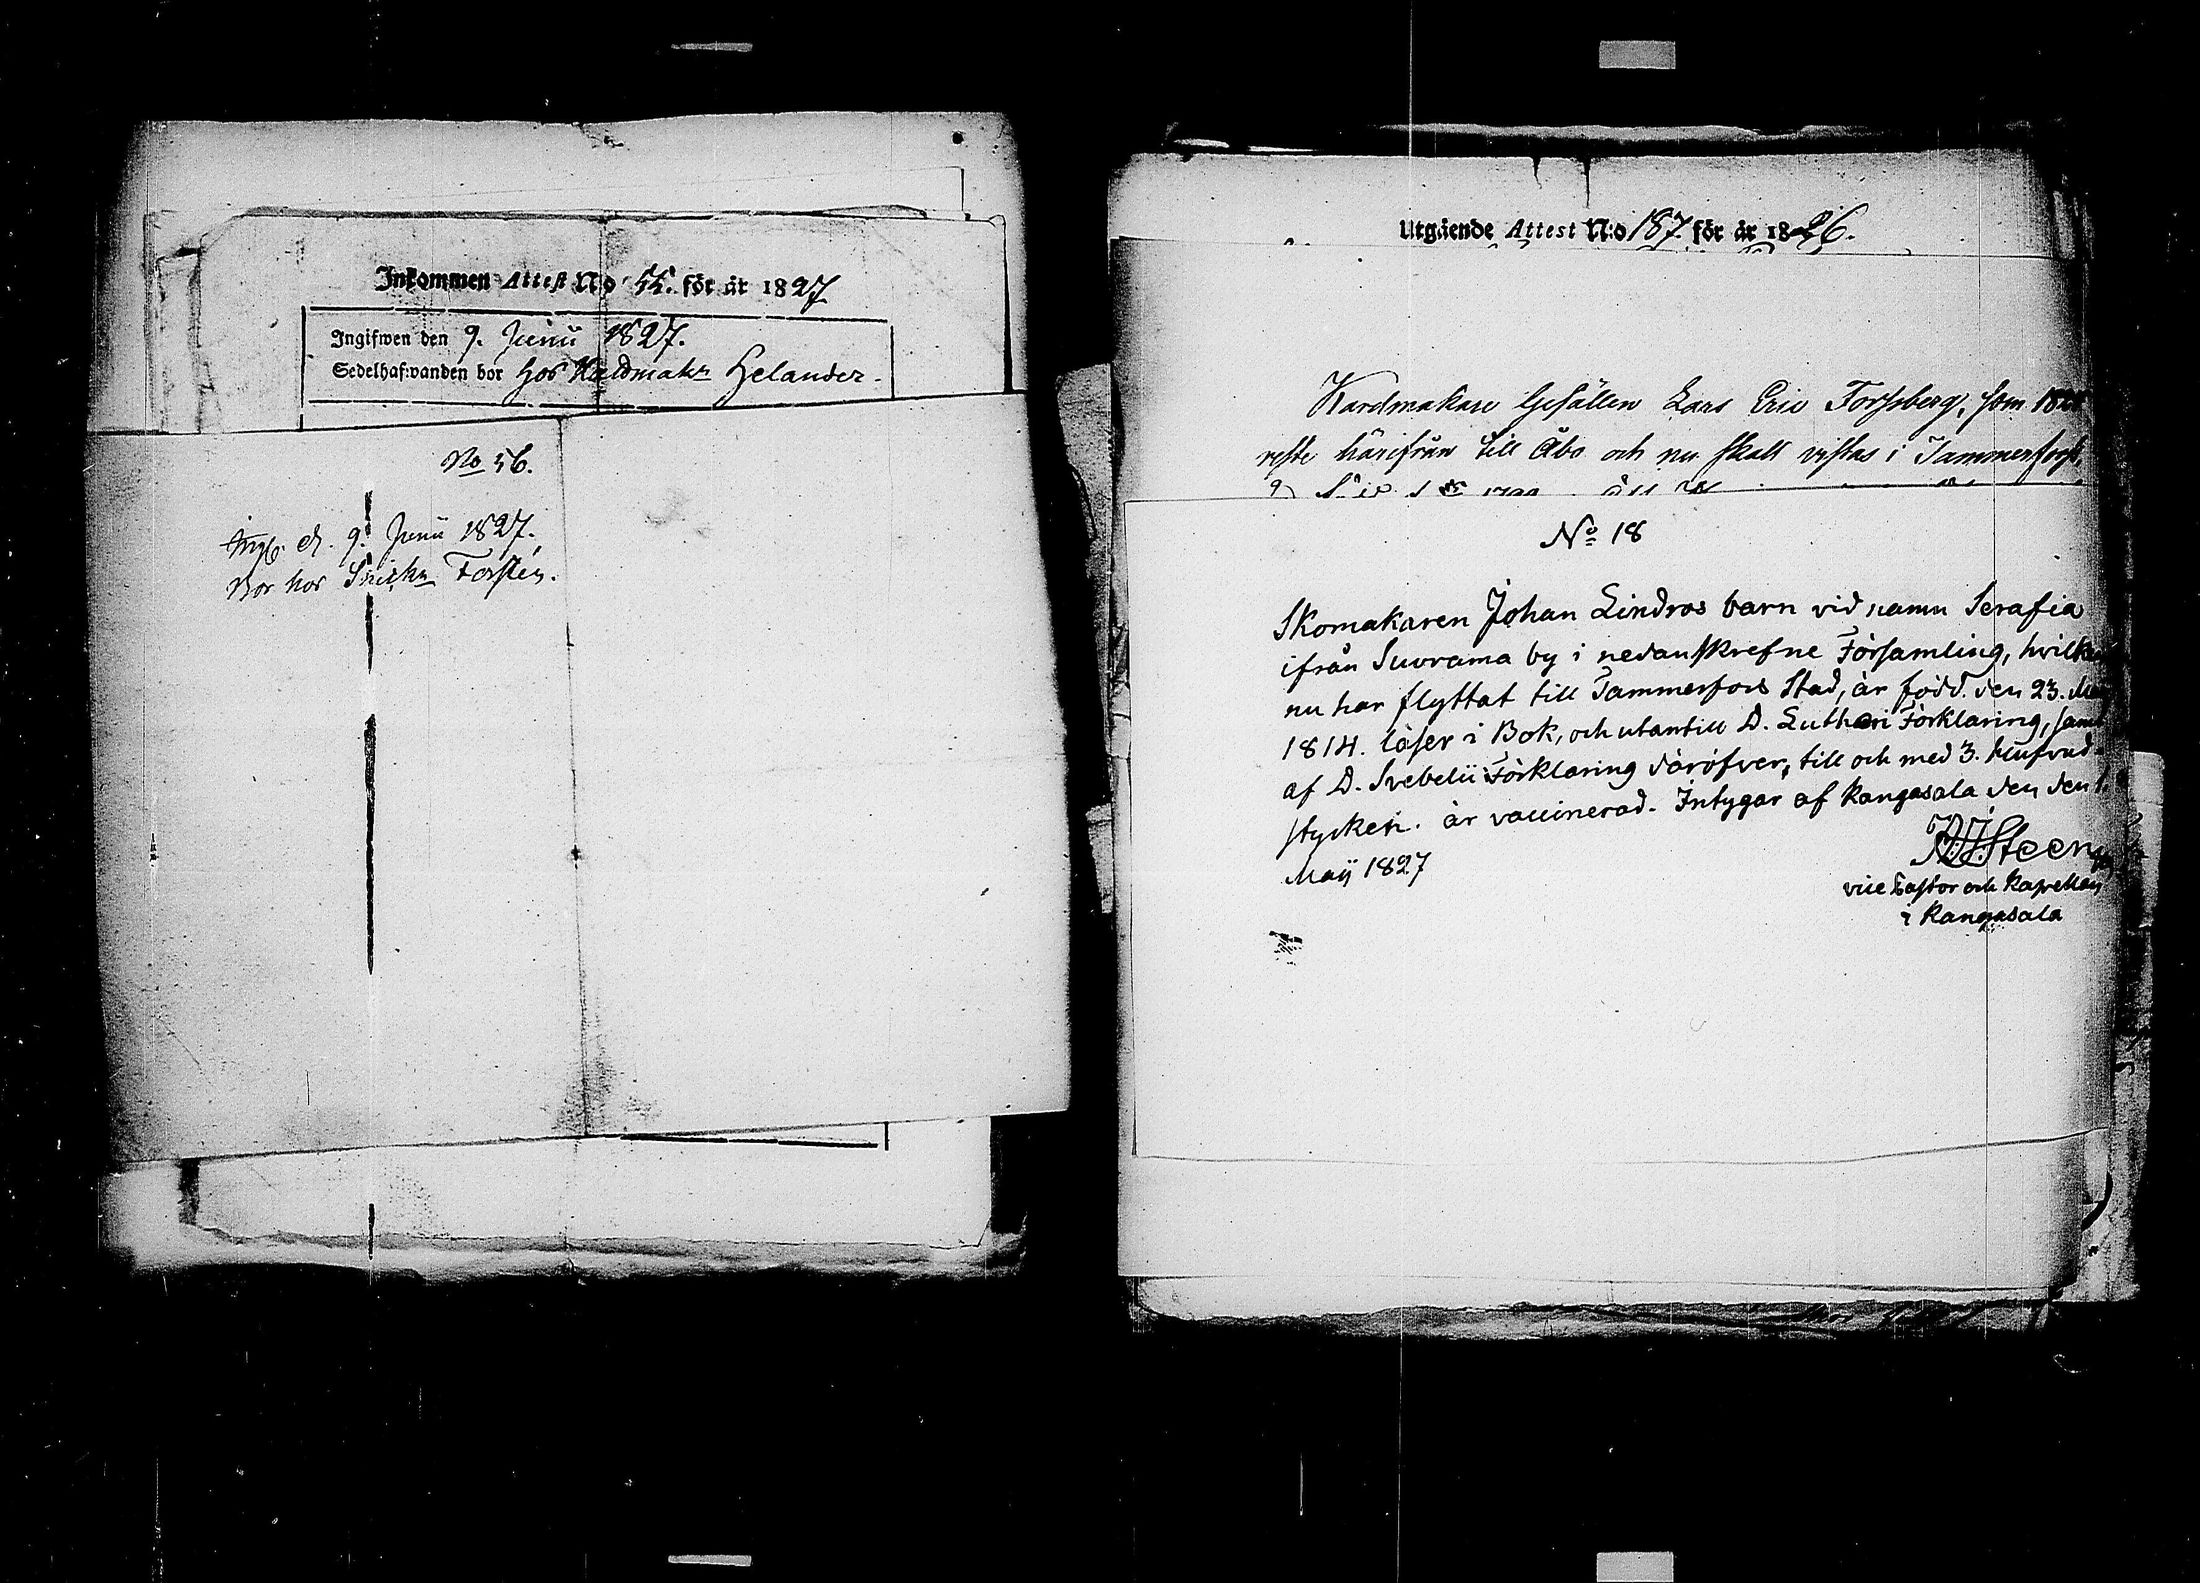 Inkommen Attest No 55. för år 1827
Ingifwen den 9. Junii 1827.
Sedelhafwanden bor hos Kardmakn Helander.
No 56.
Ingf. d. 9. Junii 1827.
Bor hos Snickn Forstén.
Utgående Attest N:o 187 för år 1826.
Kardmakare Gesällen Lars Eric Forssberg, som
reste härifrån till Åbo och nu skall vistas i Tammerfors,
No 18
Skomakaren Johan Lindros barn vid namn Serafia
ifrån Suorama by i nedanskrefne Församling, hvilken
nu har flyttat till Tammerfors Stad, är född. den 23.
1814. läser i Bok, och utantill D. Lutheri Förklaring, samt
af D. Svebelii Förklaring däröfver, till och med 3. hufvud-
stycken. är vaccinerad. Intygar af Kangasala den den
Maij 1827
Steen
vice Pastor och Kapellan
i Kangasala